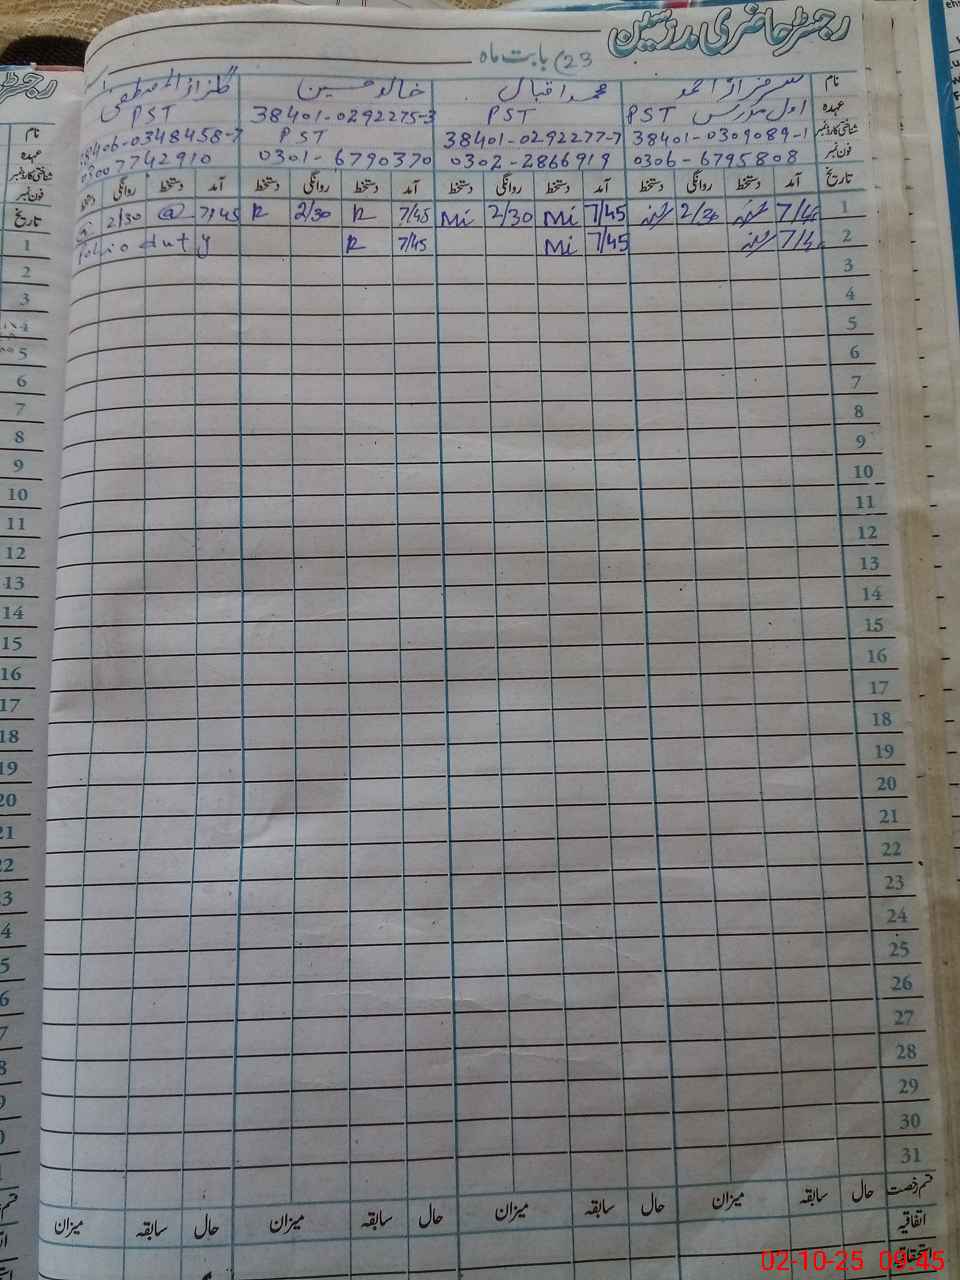 رجسٹر حاضری مدرسین
بابت ماہ
نام سرفراز احمد محمد اقبال خالد حسین گلزار المصطفیٰ
عہدہ اول مدرس PST PST PST PST
شناختی کارڈ نمبر 38401-0309089-1 38401-0292277-7 38401-0292275-3 38406-0348458-7
فون نمبر 0306-6795808 0302-2866919 0301-6790370 03007742910
تاریخ آمد دستخط روانگی دستخط آمد دستخط روانگی دستخط آمد دستخط روانگی دستخط آمد دستخط روانگی دستخط
1 7/45 2/30 7/45 Mi 2/30 Mi 7/45 R 2/30 R 7:45 @ 2/30
2 7/45 Mi 7/45 R Polio duty
3
4
5
6
7
8
9
10
11
12
13
14
15
16
17
18
19
20
21
22
23
24
25
26
27
28
29
30
31
قسم رخصت حال سابقہ میزان حال سابقہ میزان حال سابقہ میزان حال سابقہ میزان
اتفاقیہ
02-10-25 09:45
نام
عہدہ
شناختی کارڈ نمبر
فون نمبر
تاریخ
1
2
3
4
5
6
7
8
9
10
11
12
13
14
15
16
17
18
19
20
21